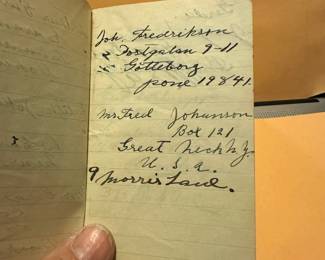 Joh. Fredrikson
Postgatan 9-11
Götteborg
pone 19841.
Mr Fred Johanson
Box 121
Great Neck N.Y.
U.S.A.
9 Morris Lane.